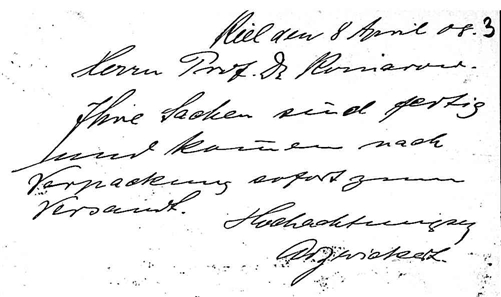 Kiel den 8 April 08. 3
Herrn Prof. Dr Komarow.
Ihre Sachen sind fertig
und kommen nach
Verpackung sofort zum
Versandt.
Hochachtungs